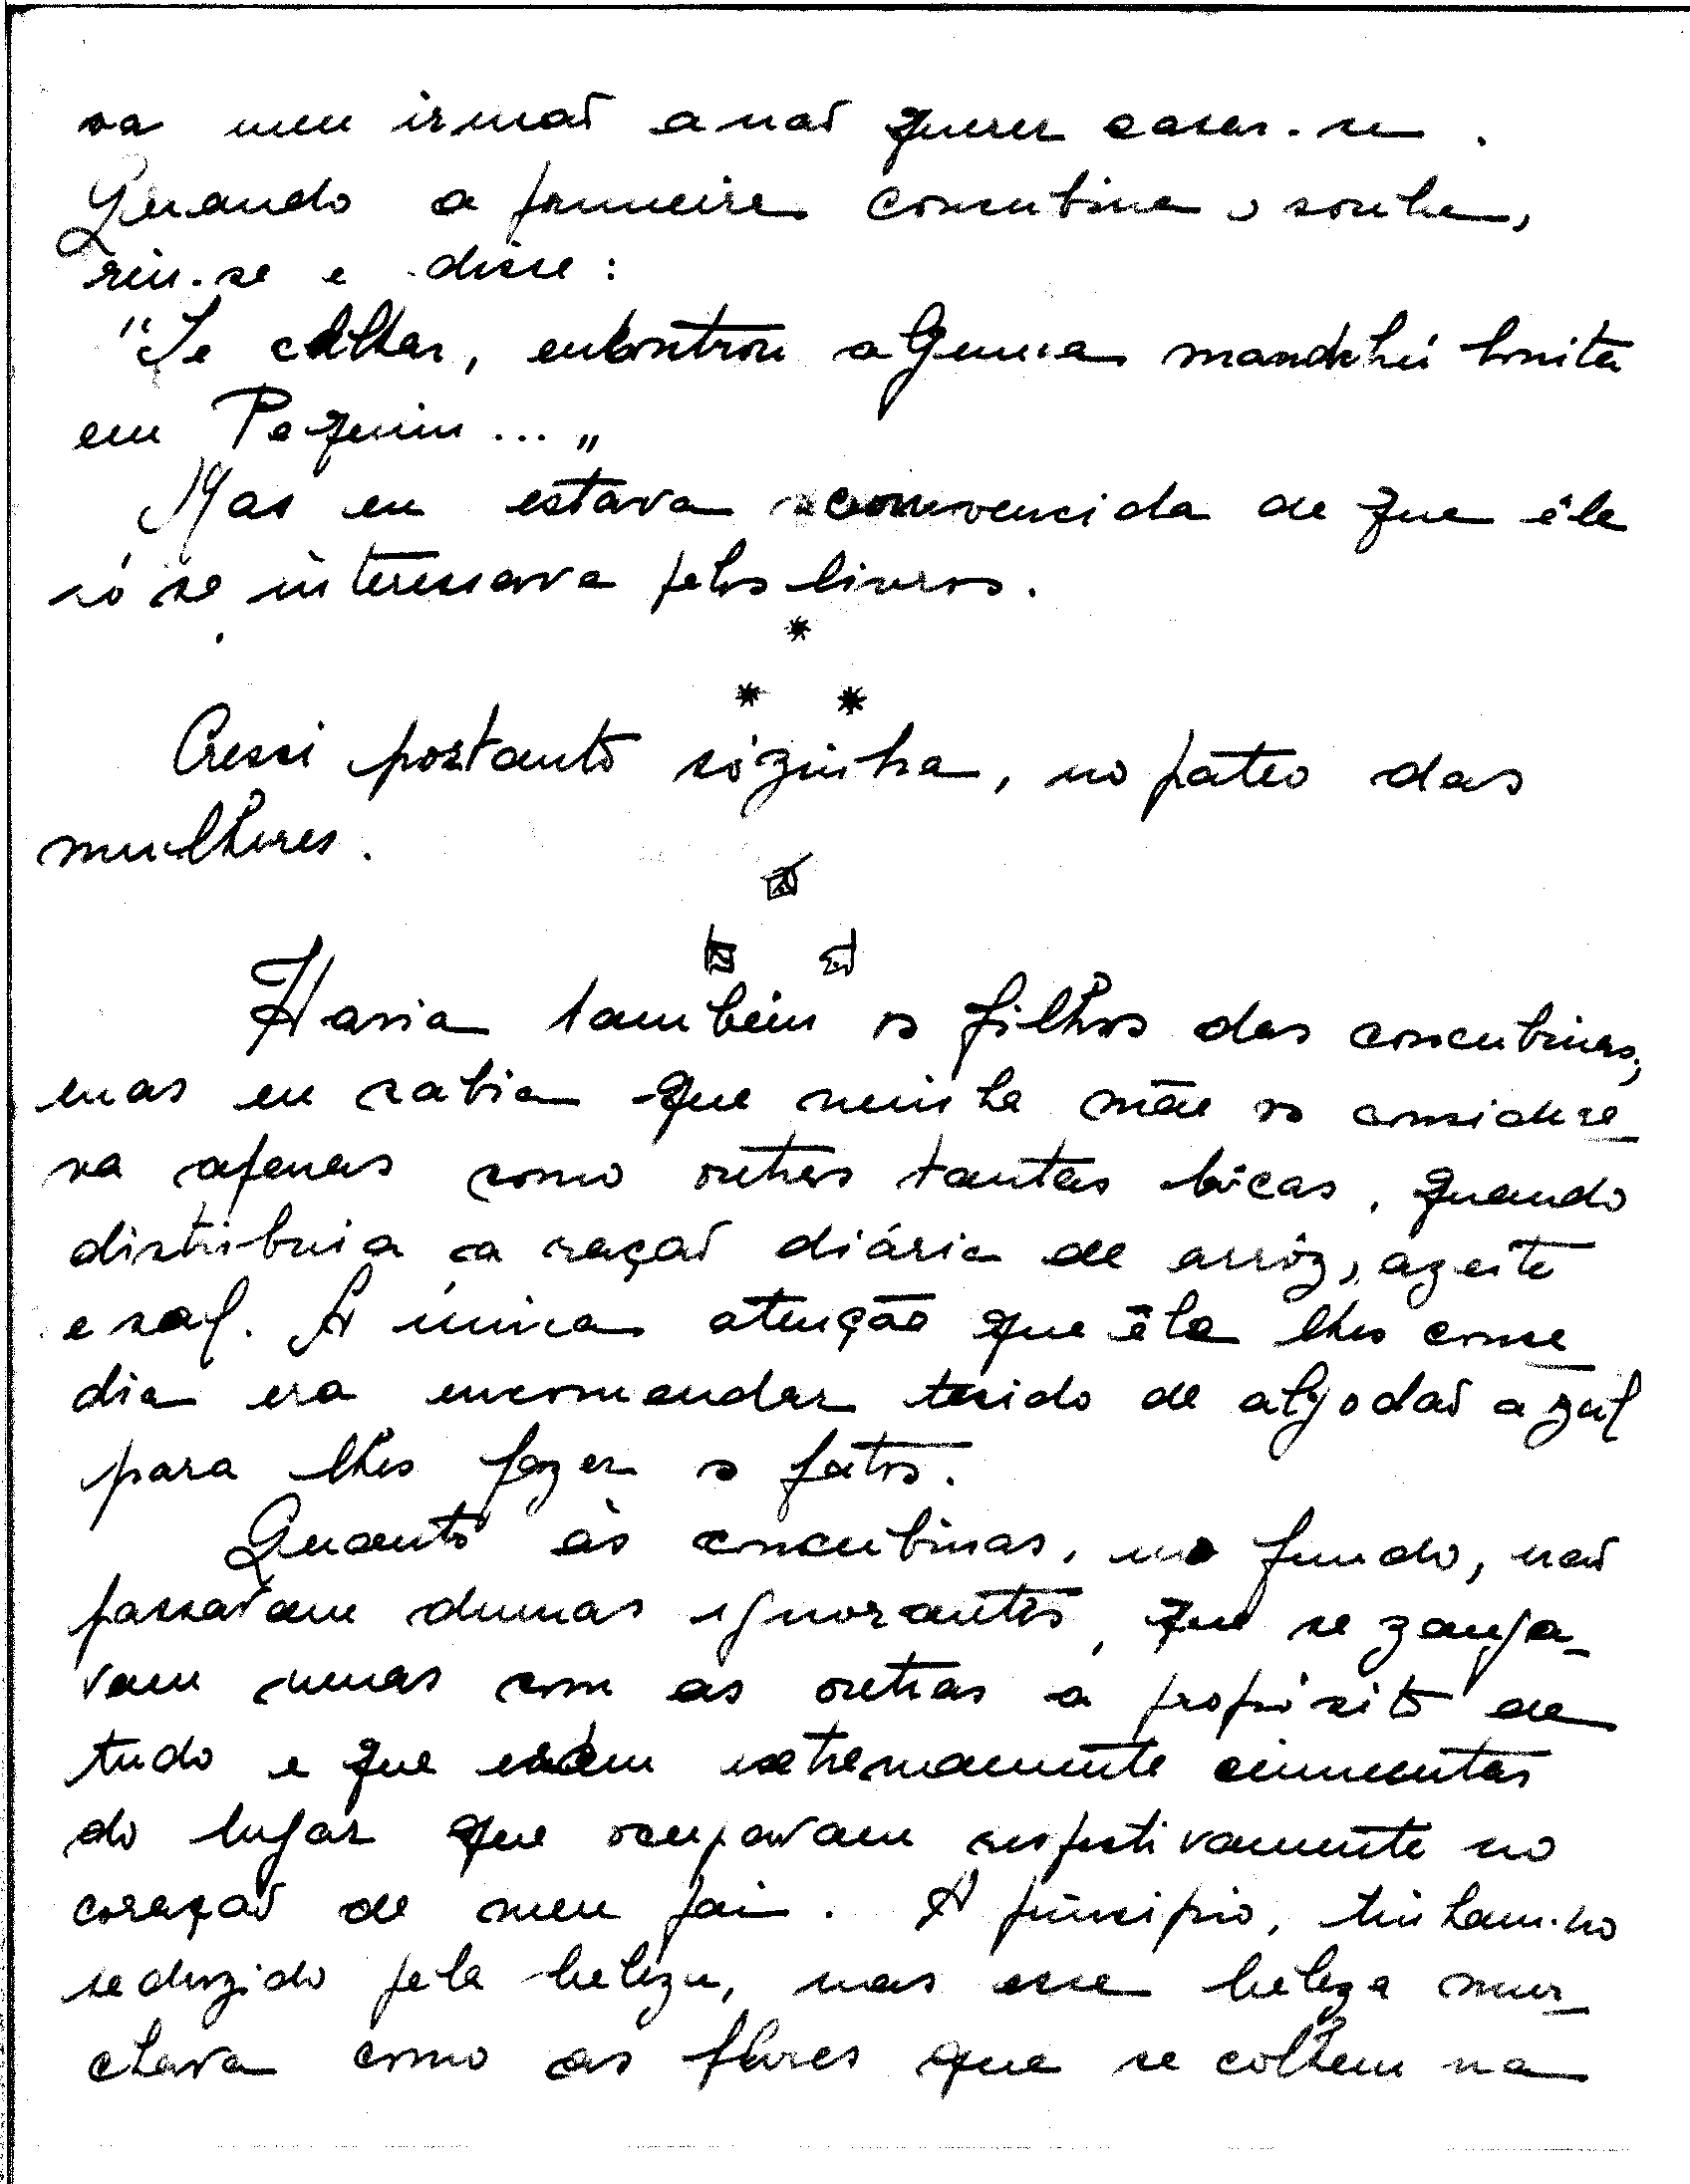 va meu irmão a não querer casar-se.
Quando a primeira concubina o soube,
riu-se e disse:
"Se calhar, encontrou alguma mandchú bonita
em Pequim..."
Mas eu estava convencida de que êle
só se interessava pelos livros.
*
* *
Cresci portanto sòzinha, no páteo das
mulheres.
Havia também os filhos das concubinas,
mas eu sabia que minha mãe os considera_
va apenas como outras tantas bôcas, quando
distribuia a ração diária de arroz, azeite
e sal. A única atenção que ela lhes conce_
dia era encomendar tecido de algodão azul
para lhes fazer os fatos.
Quanto às concubinas, no fundo, não
passavam dumas ignorantes, que se zanga_
vam umas com as outras a propósito de
tudo e que eram extremamente ciumentas
do lugar que ocupavam respectivamente no
coração de meu pai. A princípio, tinham-no
seduzido pela beleza, mas essa beleza mur_
chava como as flôres que se colhem na